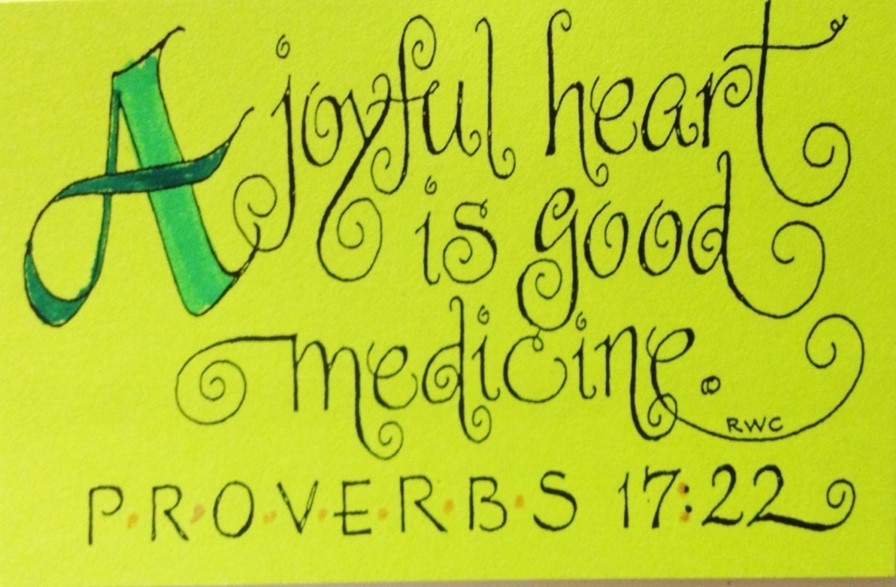 A joyful heart
is good
medicine.
RWC
P·R·O·V·E·R·B·S 17:22